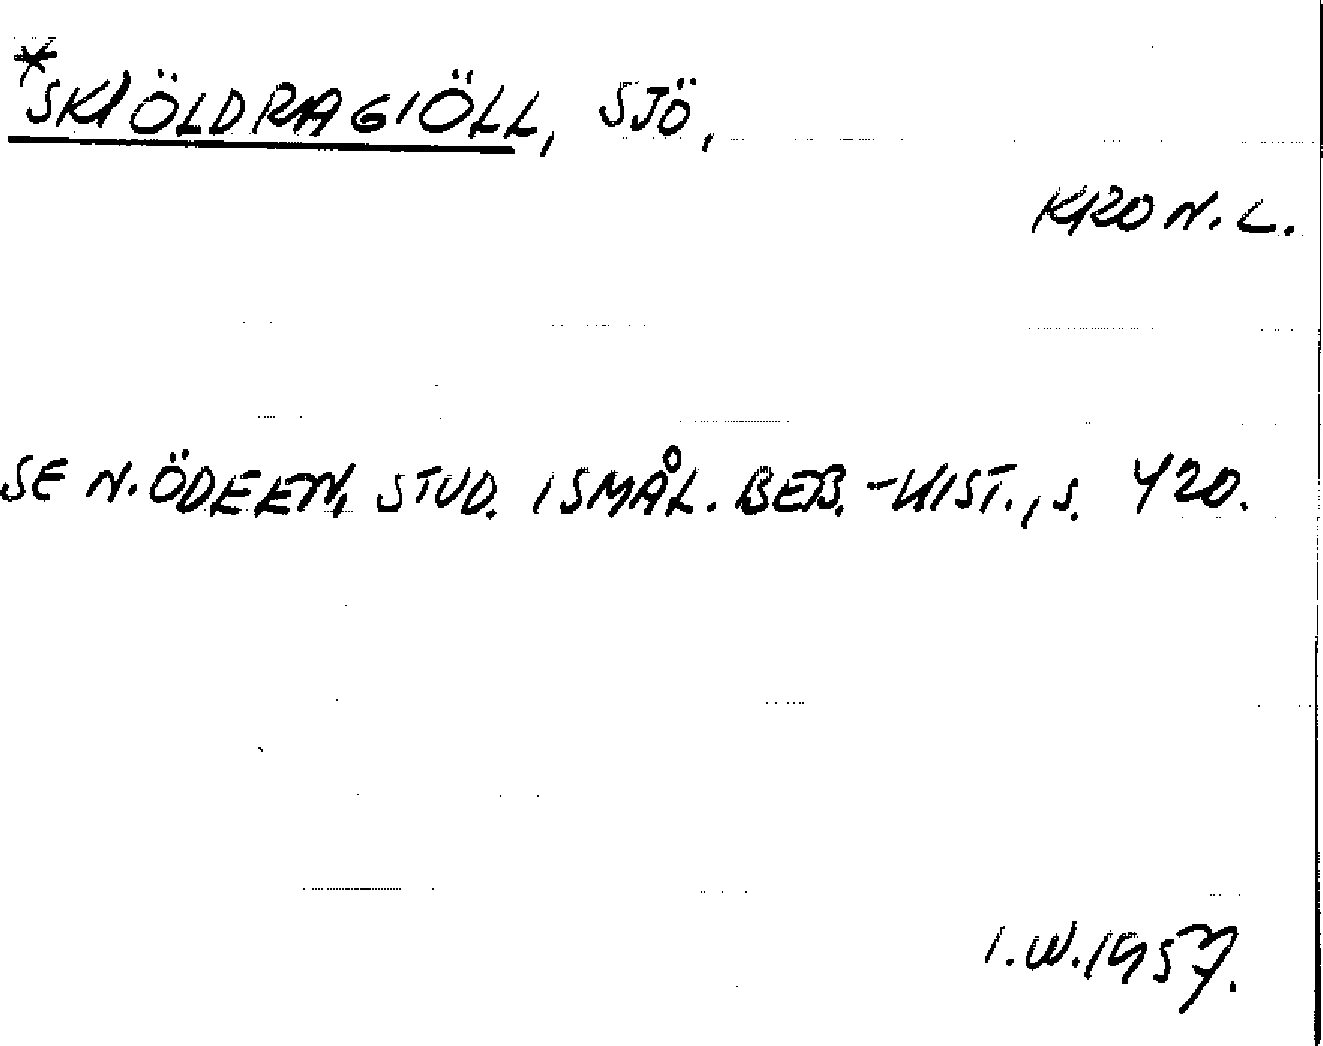 *SKIÖLDRAGIÖLL, SJÖ,
KRON.L.
SE N. ÖDEEN, STUD. I SMÅL. BEB.-HIST., S. 420.
I.W.1957.